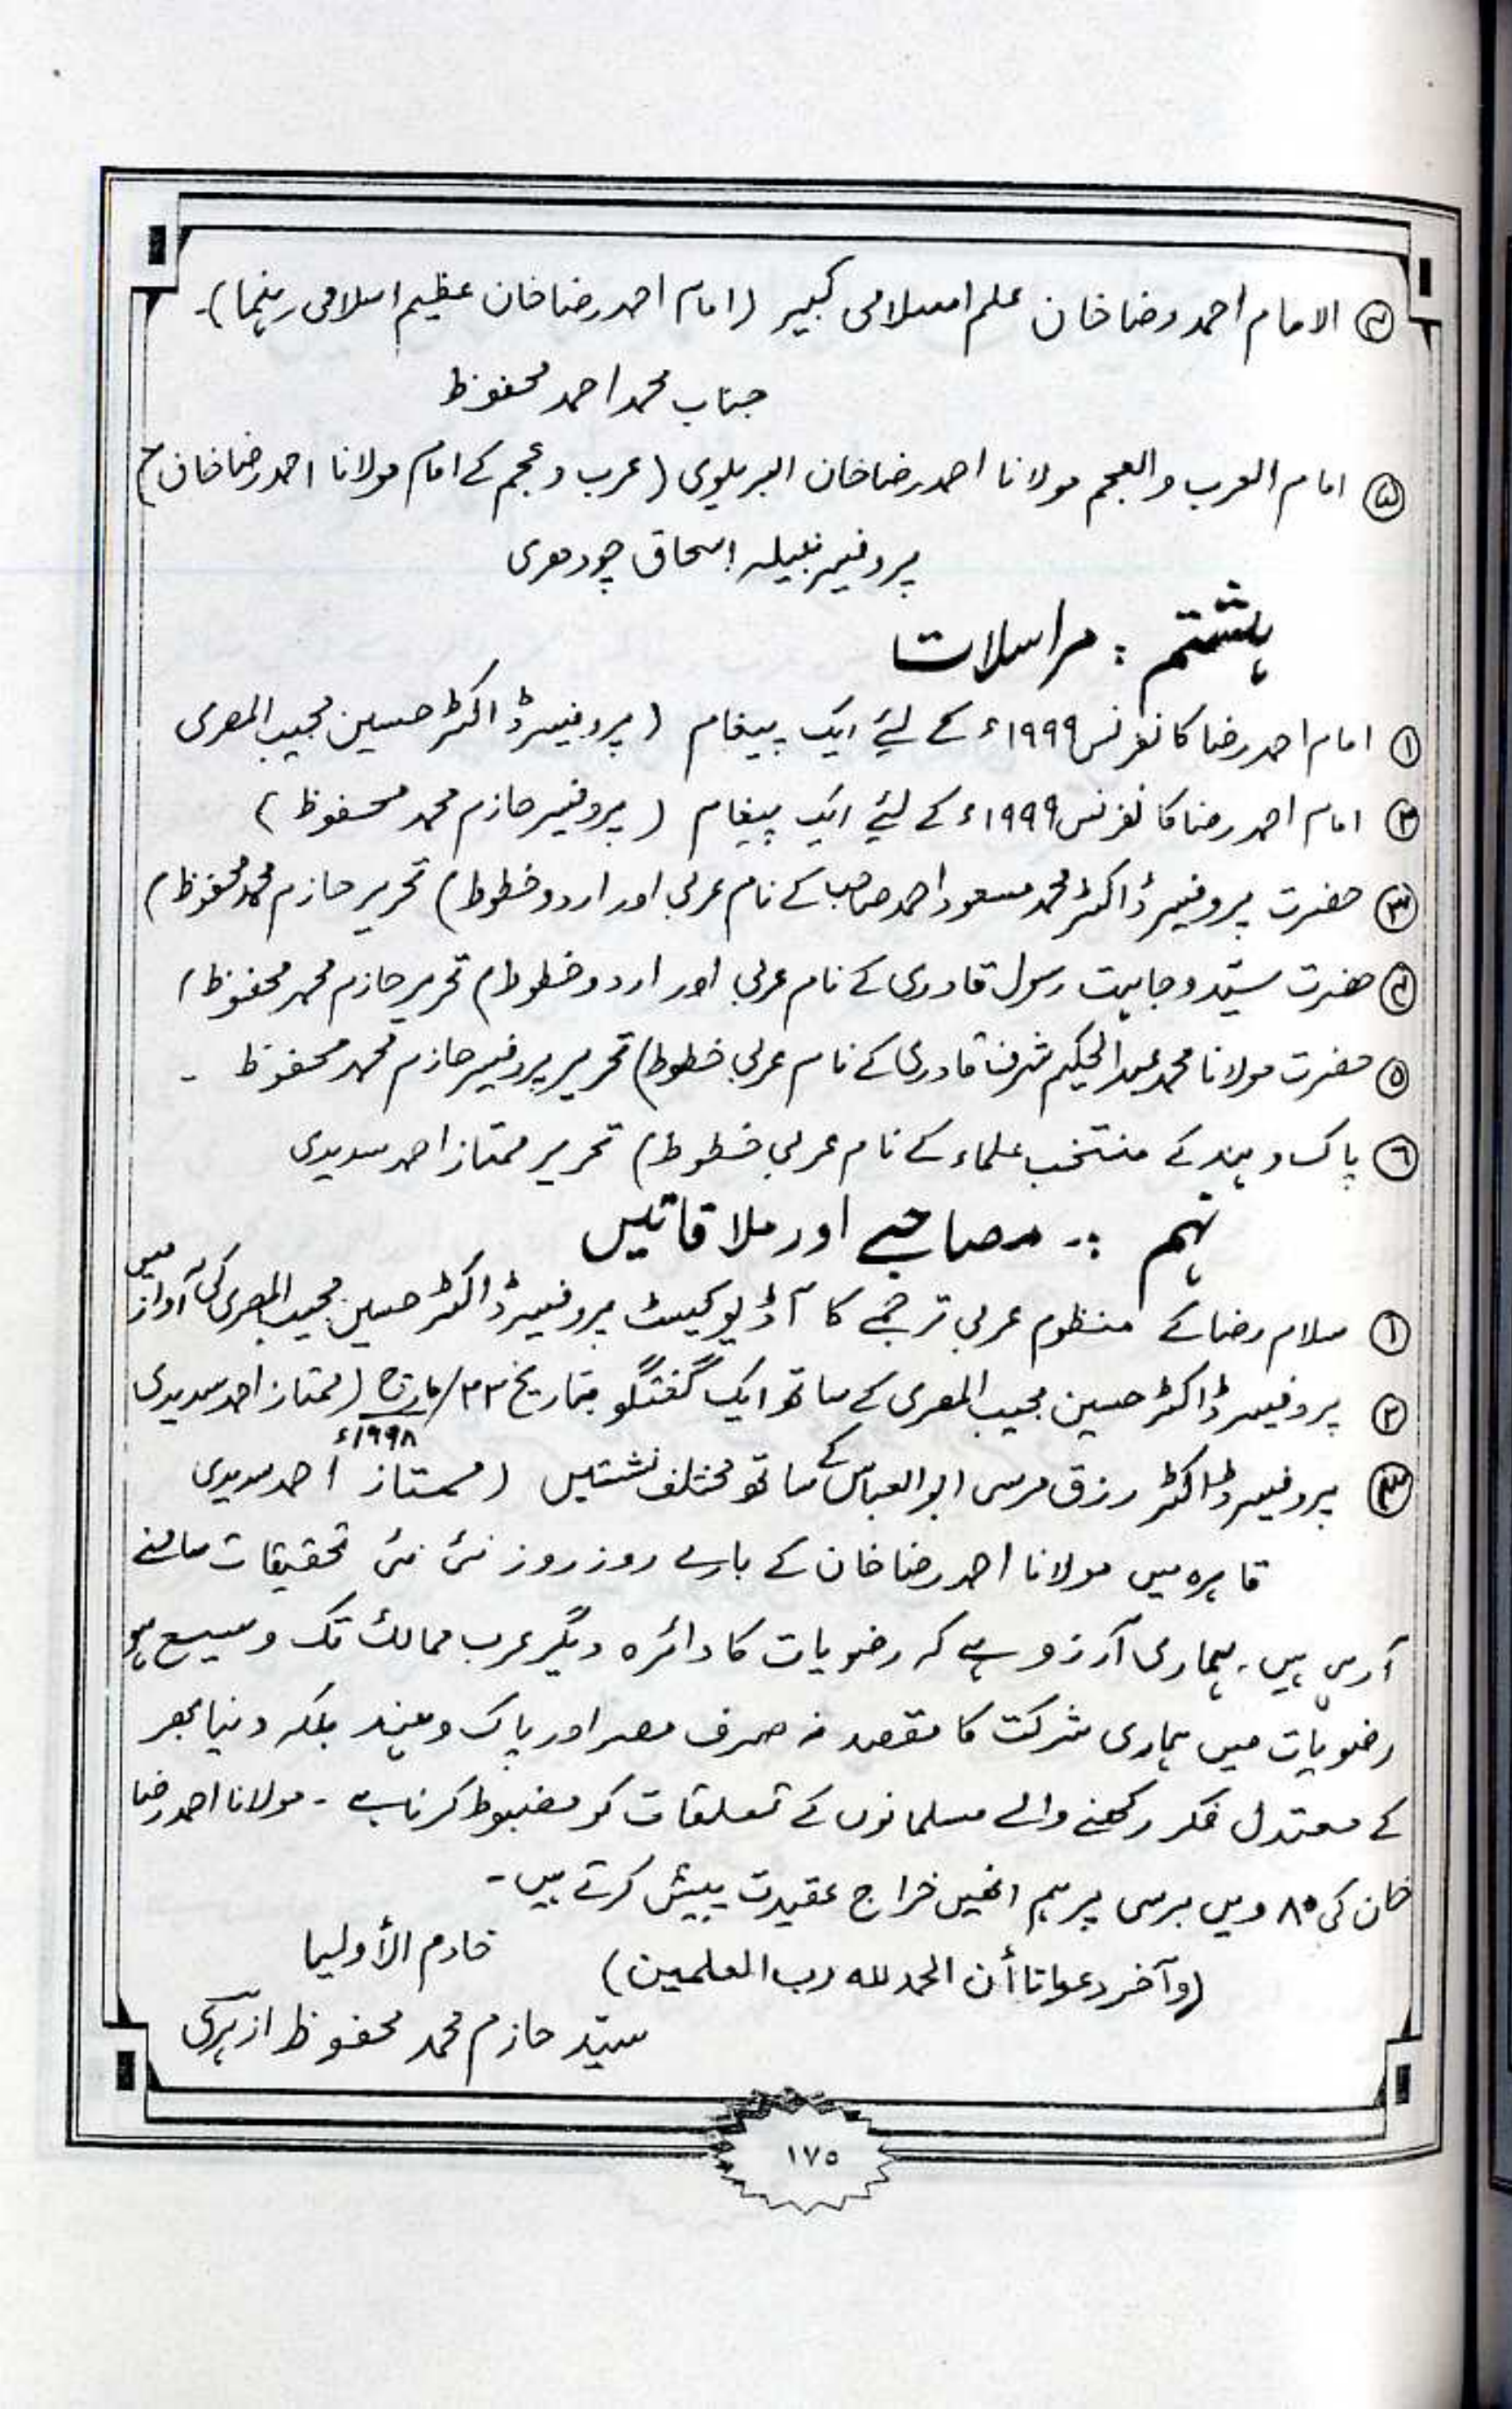 ④ الامام احمد رضا خان علم اسلامی کبیر (امام احمد رضا خان عظیم اسلامی رہنما)۔
جناب محمد احمد محفوظ
⑤ امام العرب والعجم مولانا احمد رضا خان البریلوی (عرب و عجم کے امام مولانا احمد رضا خان)
پروفیسر نبیلہ إسحاق چودھری
ہشتم : مراسلات
① امام احمد رضا کانفرنس ۱۹۹۹ء کے لئے ایک پیغام (پروفیسر ڈاکٹر حسین مجیب المصری
② امام احمد رضا کانفرنس ۱۹۹۹ء کے لئے ایک پیغام (پروفیسر حازم محمد محفوظ)
③ حضرت پروفیسر ڈاکٹر محمد مسعود احمد صاحب کے نام عربی اور اردو خطوط) تحریر حازم محمد محفوظ)
④ حضرت سیّد وجاہت رسول قادری کے نام عربی اور اردو خطوط) تحریر حازم محمد محفوظ)
⑤ حضرت مولانا محمد عبد الحکیم شرف قادری کے نام عربی خطوط) تحریر پروفیسر حازم محمد محفوظ ۔
⑥ پاک و ہند کے منتخب علماء کے نام عربی خطوط) تحریر ممتاز احمد سدیدی
نہم :۔ مصاحبے اور ملاقاتیں
① سلام رضا کے منظوم عربی ترجمے کا آڈیو کیسٹ پروفیسر ڈاکٹر حسین مجیب المصری کی آواز میں
② پروفیسر ڈاکٹر حسین مجیب المصری کے ساتھ ایک گفتگو بتاریخ ۲۳/مارچ ۱۹۹۸ء (ممتاز احمد سدیدی
③ پروفیسر ڈاکٹر رزق مرسی ابو العباس کے ساتھ مختلف نشستیں (ممتاز احمد سدیدی
قاہرہ میں مولانا احمد رضا خان کے بارے روز روز نئی نئی تحقیقات سامنے
آرہی ہیں۔ ہماری آرزو ہے کہ رضویات کا دائرہ دیگر عرب ممالک تک وسیع ہو
رضویات میں ہماری شرکت کا مقصد نہ صرف مصر اور پاک و ہند بلکہ دنیا بھر
کے معتدل فکر رکھنے والے مسلمانوں کے تعلقات کو مضبوط کرنا ہے ۔ مولانا احمد رضا
خان کی ۸۰ ویں برسی پر ہم انھیں خراج عقیدت پیش کرتے ہیں ۔
(وآخر دعوانا أن الحمد لله رب العلمین)
خادم الأولیا
سیّد حازم محمد محفوظ ازہرکی
۱۷۵